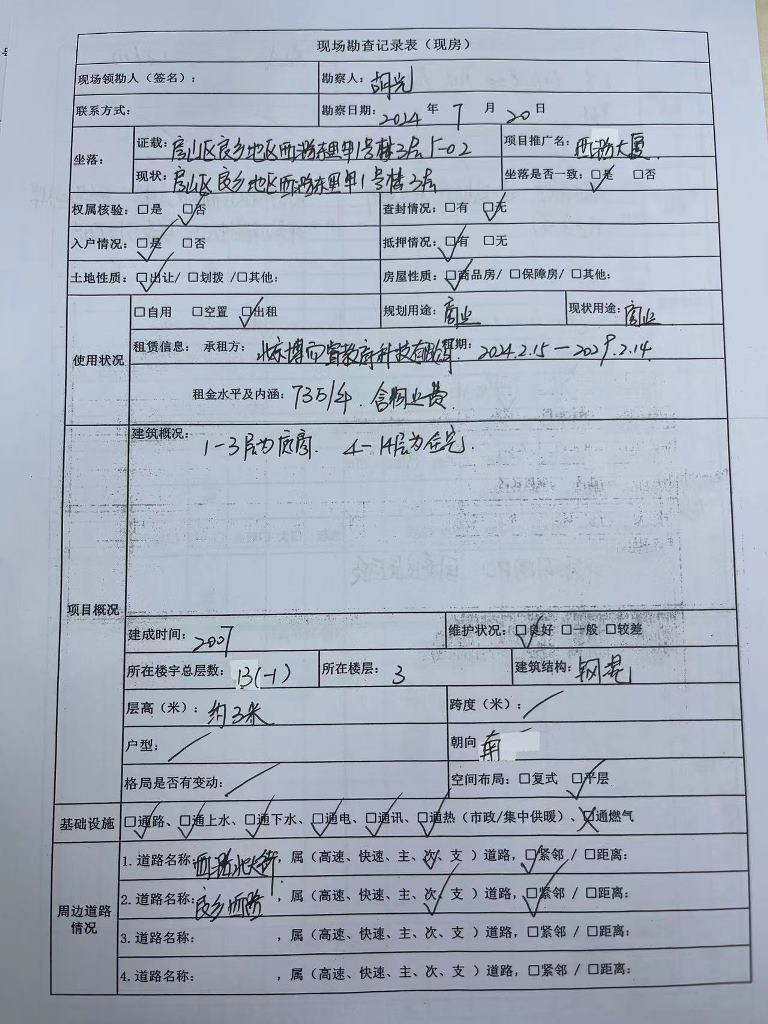 现场勘查记录表（现房）
现场领勘人（签名）： 勘察人：胡光
联系方式： 勘察日期：2024 年 7 月 20 日
坐落： 证载：房山区良乡地区西潞东里甲1号楼3层1-02 项目推广名：西潞大厦
现状：房山区良乡地区西潞东里甲1号楼3层 坐落是否一致：☑是 □否
权属核验：□是 ☑否 查封情况：□有 ☑无
入户情况：☑是 □否 抵押情况：☑有 □无
土地性质：☑出让/ □划拨 /□其他： 房屋性质：☑商品房/ □保障房/ □其他：
使用状况 □自用 □空置 ☑出租 规划用途：商业 现状用途：商业
租赁信息： 承租方：北京博 教育科技有限公司 期：2024.2.15—2029.2.14
租金水平及内涵：735/年．含物业费
项目概况 建筑概况：1-3层为底商．4-14层为住宅．
建成时间：2007 维护状况：☑良好 □一般 □较差
所在楼宇总层数：13(-1) 所在楼层：3 建筑结构：钢混
层高（米）：约3米 跨度（米）：/
户型：/ 朝向 南
格局是否有变动：/ 空间布局：□复式 ☑平层
基础设施 ☑通路、☑通上水、☑通下水、☑通电、☑通讯、☑通热（市政/集中供暖）、☒通燃气
周边道路情况 1.道路名称：西潞北大街，属（高速、快速、主、次√、支 ）道路，☑紧邻 / □距离：
2.道路名称：良乡西路，属（高速、快速、主、次√、支 ）道路，☑紧邻 / □距离：
3.道路名称： ，属（高速、快速、主、次、支 ）道路，□紧邻 / □距离：
4.道路名称： ，属（高速、快速、主、次、支 ）道路，□紧邻 / □距离：